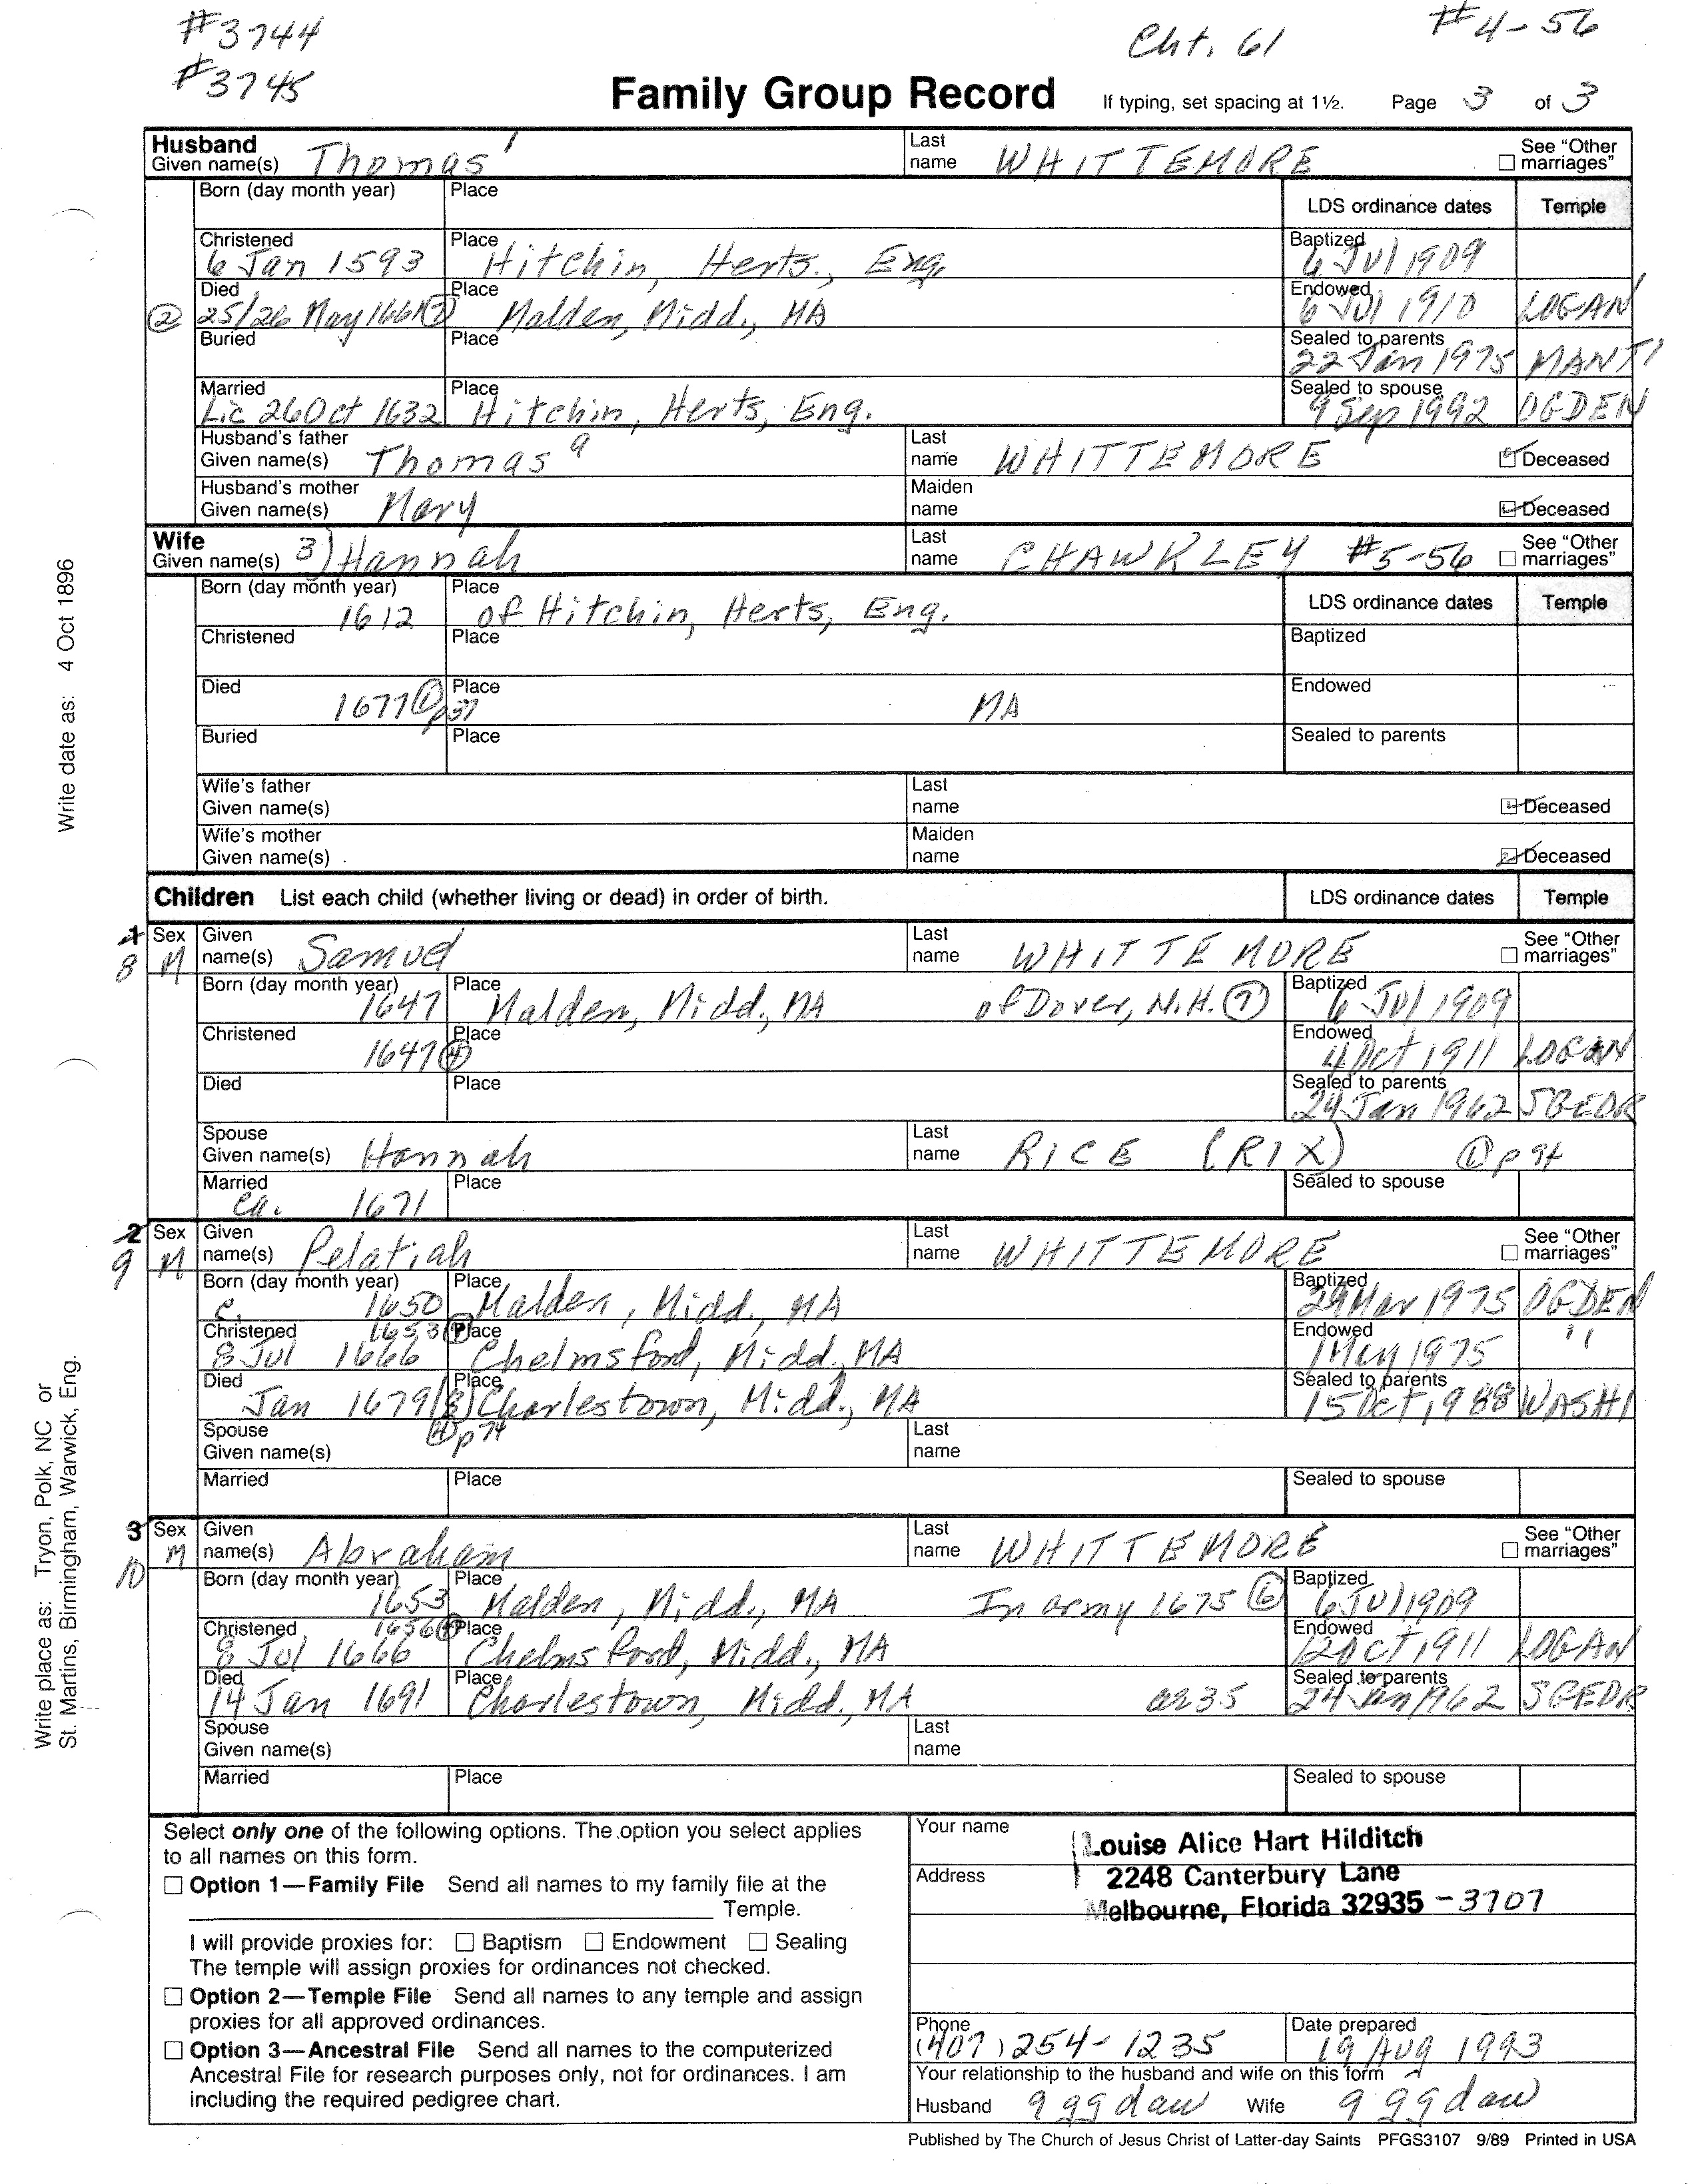 #3744
#3745
Cht. 61
#4-56
Family Group Record If typing, set spacing at 1½. Page 3 of 3
Husband
Given name(s) Thomas Last name WHITTEMORE See "Other marriages"
Born (day month year) Place LDS ordinance dates Temple
Christened 6 Jan 1593 Place Hitchin, Herts., Eng. Baptized 6 Jul 1909
② Died 25/26 May 1661 Place Malden, Midd., MA Endowed 6 Jul 1910 LOGAN
Buried Place Sealed to parents 22 Jan 1975 MANTI
Married Lic 26 Oct 1632 Place Hitchin, Herts, Eng. Sealed to spouse 9 Sep 1992 OGDEN
Husband's father
Given name(s) Thomas Last name WHITTEMORE Deceased
Husband's mother
Given name(s) Mary Maiden name Deceased
Wife
Given name(s) 3) Hannah Last name CHAWKLEY #5-56 See "Other marriages"
Born (day month year) 1612 Place of Hitchin, Herts, Eng. LDS ordinance dates Temple
Christened Place Baptized
Died 1677 ① p37 Place MA Endowed
Buried Place Sealed to parents
Wife's father
Given name(s) Last name Deceased
Wife's mother
Given name(s) Maiden name Deceased
Children List each child (whether living or dead) in order of birth. LDS ordinance dates Temple
1 8 Sex M Given name(s) Samuel Last name WHITTEMORE See "Other marriages"
Born (day month year) 1647 Place Malden, Midd., MA of Dover, N.H. ⑦ Baptized 6 Jul 1909
Christened 1647 ④ Place Endowed 4 Oct 1911 LOGAN
Died Place Sealed to parents 24 Jan 1962 SGEDR
Spouse
Given name(s) Hannah Last name RICE (RIX) ① p
Married ca. 1671 Place Sealed to spouse
2 9 Sex M Given name(s) Pelatiah Last name WHITTEMORE See "Other marriages"
Born (day month year) c. 1650 Place Malden, Midd., MA Baptized 29 Mar 1975 OGDEN
Christened 1653 8 Jul 1666 Place Chelmsford, Midd., MA Endowed 1 May 1975 "
Died Jan 1679/8 Place Charlestown, Midd., MA Sealed to parents 15 Oct 1988 WASHI
Spouse ④ p74
Given name(s) Last name
Married Place Sealed to spouse
3 10 Sex M Given name(s) Abraham Last name WHITTEMORE See "Other marriages"
Born (day month year) 1653 Place Malden, Midd., MA In army 1675 ⑥ Baptized 6 Jul 1909
Christened 1656 8 Jul 1666 Place Chelmsford, Midd., MA Endowed 12 Oct 1911 LOGAN
Died 14 Jan 1691 Place Charlestown, Midd., MA ae 35 Sealed to parents 24 Jan 1962 SGEDR
Spouse
Given name(s) Last name
Married Place Sealed to spouse
Select only one of the following options. The option you select applies
to all names on this form.
Option 1—Family File Send all names to my family file at the
Temple.
I will provide proxies for: Baptism Endowment Sealing
The temple will assign proxies for ordinances not checked.
Option 2—Temple File Send all names to any temple and assign
proxies for all approved ordinances.
Option 3—Ancestral File Send all names to the computerized
Ancestral File for research purposes only, not for ordinances. I am
including the required pedigree chart.
Your name Louise Alice Hart Hilditch
Address 2248 Canterbury Lane
Melbourne, Florida 32935 - 3707
Phone (407) 254-1235 Date prepared 19 Aug 1993
Your relationship to the husband and wife on this form
Husband 9 gg dau Wife 9 gg dau
Published by The Church of Jesus Christ of Latter-day Saints PFGS3107 9/89 Printed in USA
Write date as: 4 Oct 1896
Write place as: Tryon, Polk, NC or
St. Martins, Birmingham, Warwick, Eng.